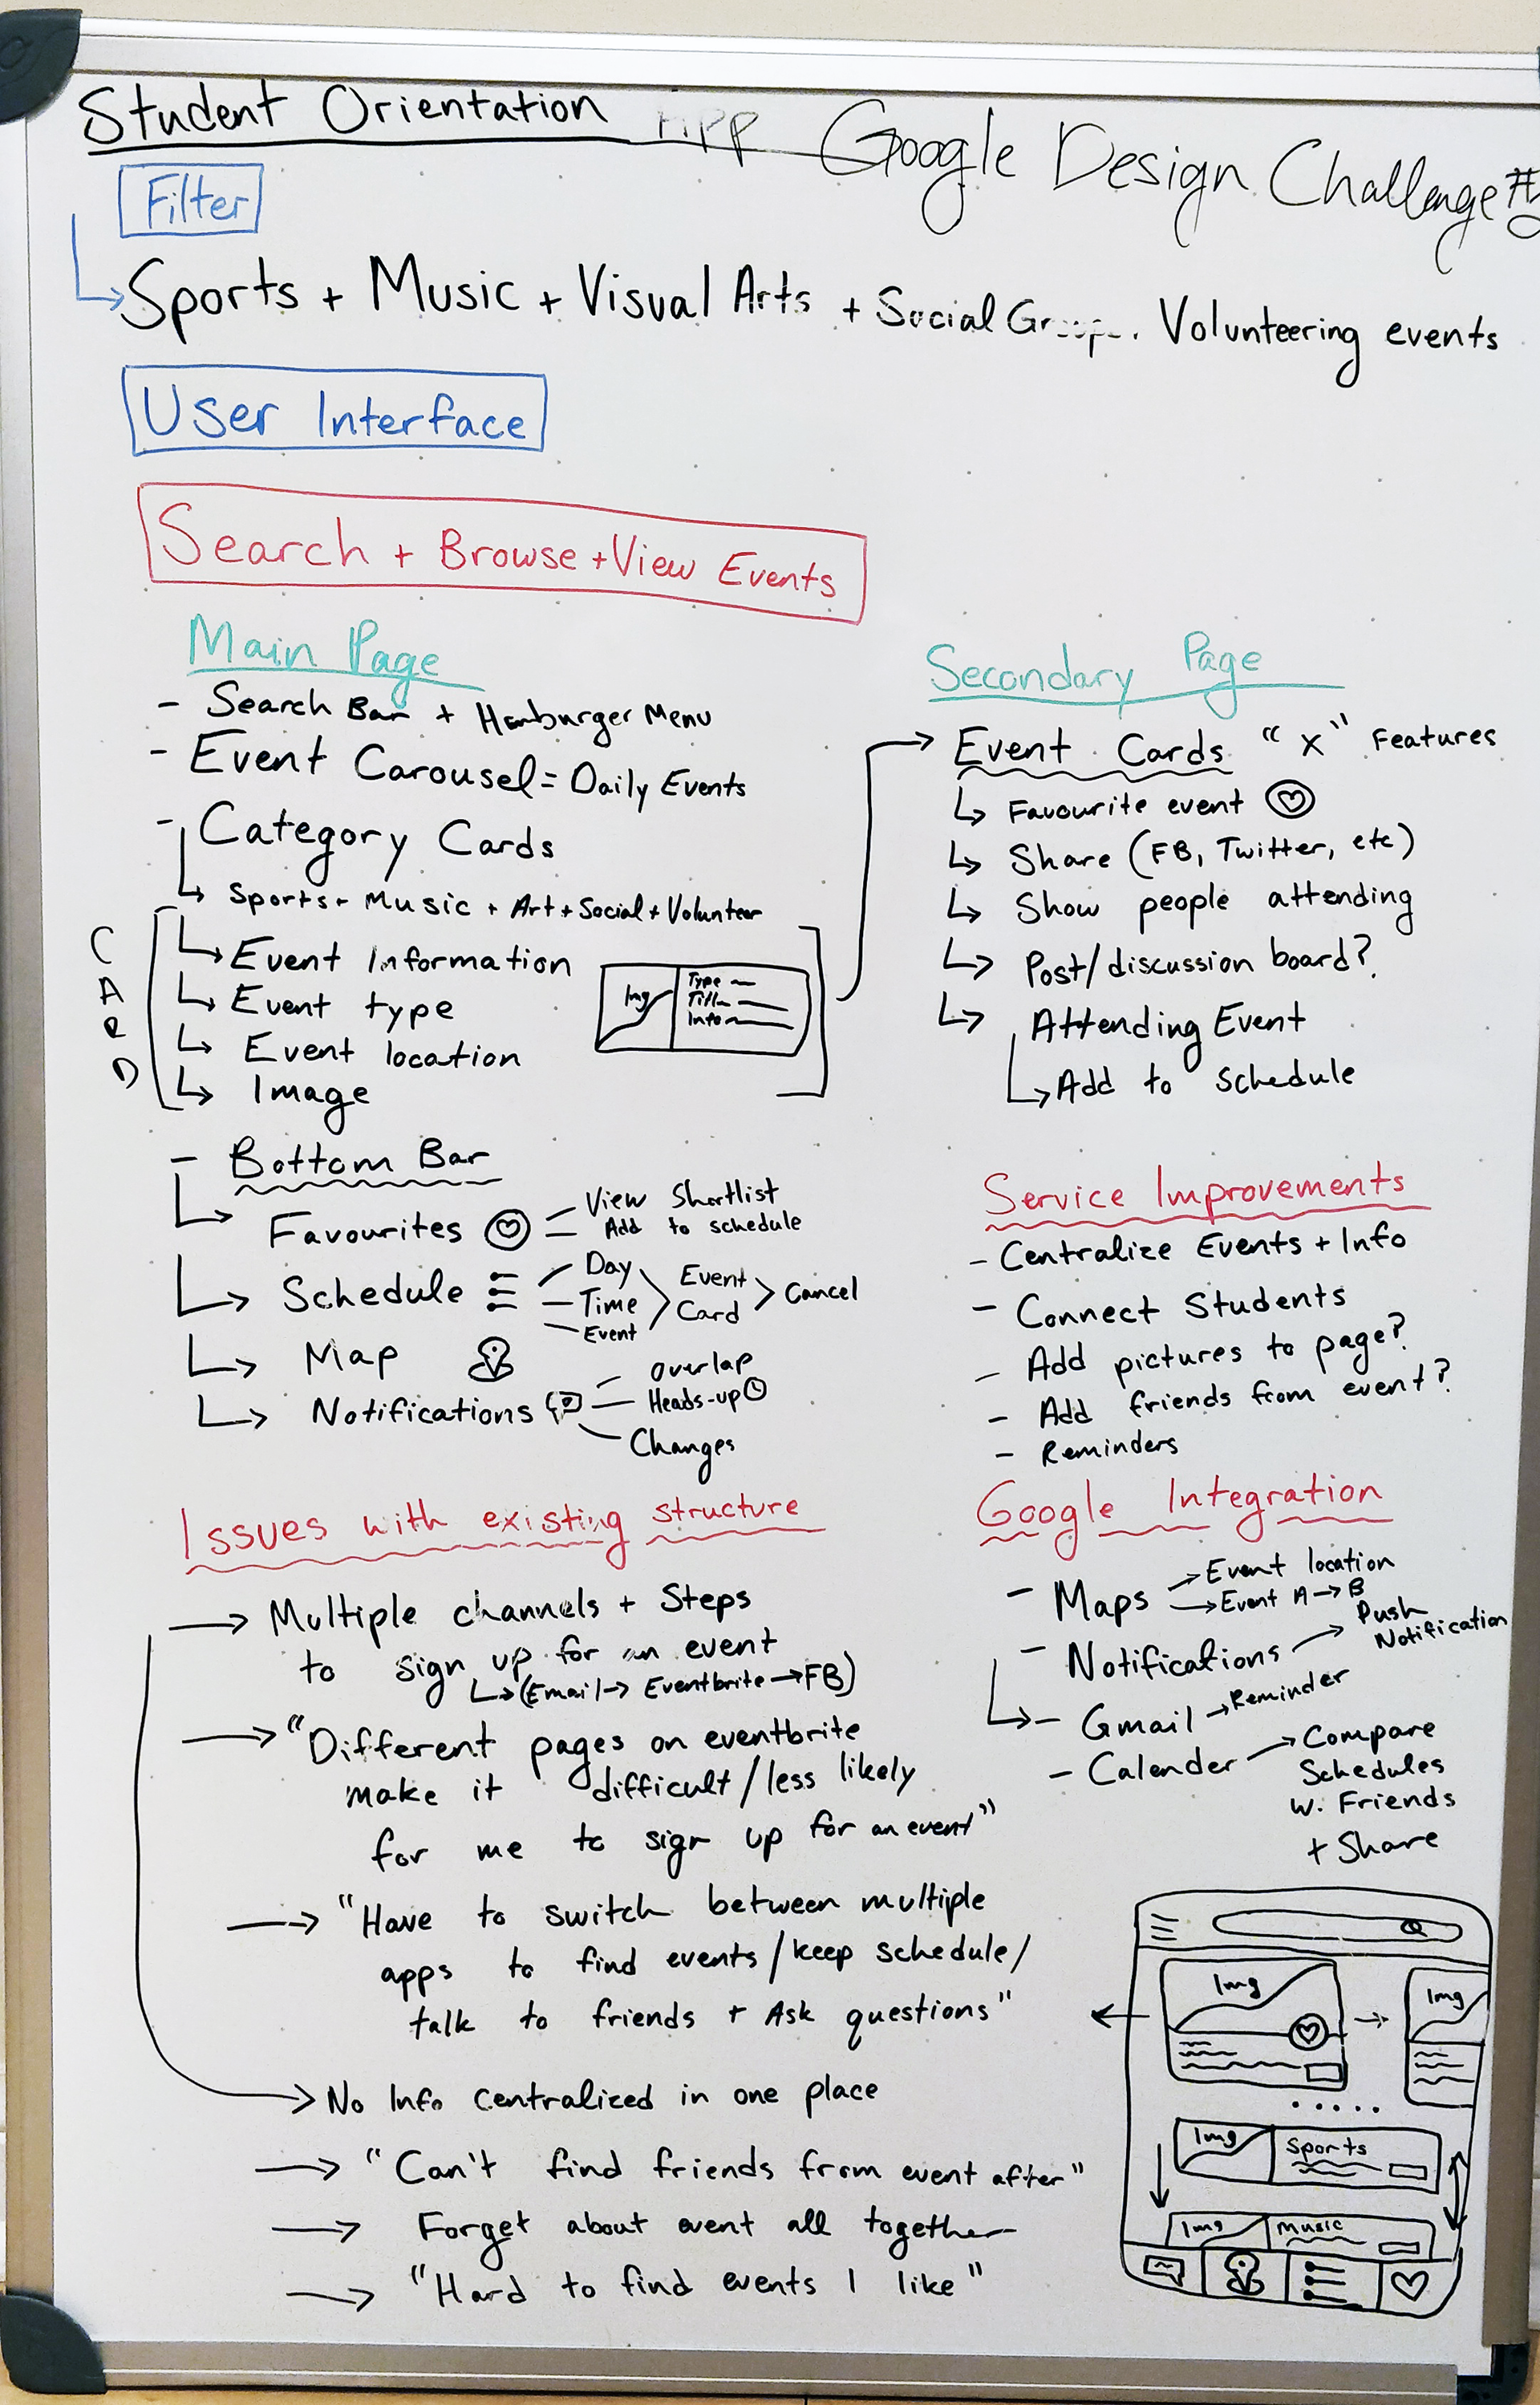 Student Orientation App
Google Design Challenge #
Filter
Sports + Music + Visual Arts + Social Groups. Volunteering events
User Interface
Search + Browse + View Events
Main Page
- Search Bar + Hamburger Menu
- Event Carousel = Daily Events
- Category Cards
Sports + Music + Art + Social + Volunteer
CARD
Event Information
Event type
Event location
Image
Img
Type
Title
Info
- Bottom Bar
Favourites
View Shortlist
Add to schedule
Schedule
Day
Time
Event
Event Card
Cancel
Map
Notifications
Overlap
Heads-up
Changes
Secondary Page
Event Cards "x" Features
Favourite event
Share (FB, Twitter, etc)
Show people attending
Post/discussion board?
Attending Event
Add to schedule
Service Improvements
- Centralize Events + Info
- Connect Students
- Add pictures to page?
- Add friends from event?
- Reminders
Issues with existing structure
→ Multiple channels + Steps
to sign up for an event
(Email → Eventbrite → FB)
→ "Different pages on eventbrite
make it difficult/less likely
for me to sign up for an event"
→ "Have to switch between multiple
apps to find events/keep schedule/
talk to friends + Ask questions"
→ No Info centralized in one place
→ "Can't find friends from event after"
→ Forget about event all together
→ "Hard to find events I like"
Google Integration
- Maps
→ Event location
→ Event A → B
- Notifications → Push
Notification
- Gmail → Reminder
- Calender → Compare
Schedules
w. Friends
+ Share
Img
Img
Img
Sports
Img
Music